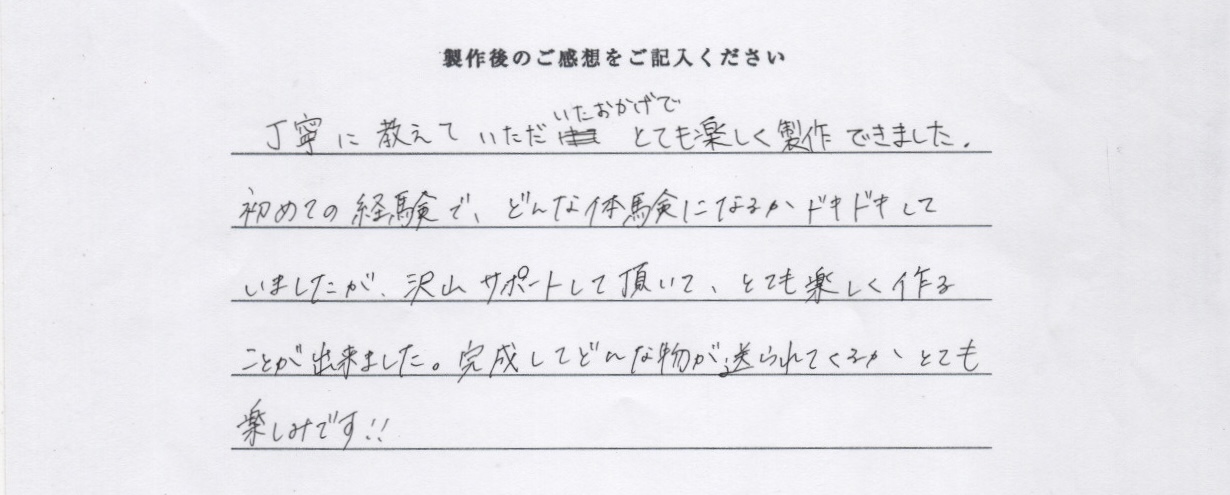 製作後のご感想をご記入ください
丁寧に教えていただいたおかげでとても楽しく製作できました.
初めての経験で、どんな体験になるかドキドキして
いましたが、沢山サポートして頂いて、とても楽しく作る
ことが出来ました。完成してどんな物が送られてくるかとても
楽しみです!!